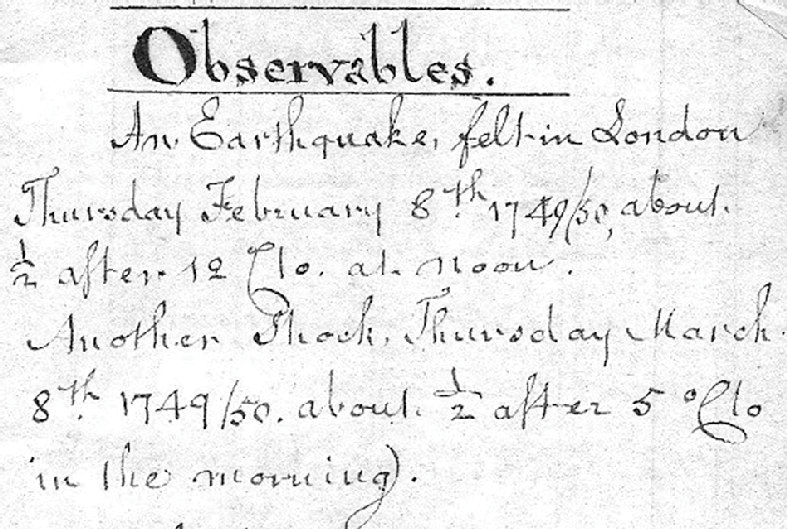 Observables.
An Earthquake, felt in London
Thursday February 8th 1749/50, about
1/2 after 12 Clo. at noon.
Another Shock, Thursday March
8th. 1749/50. about 1/2 after 5 oClo
in the morning).